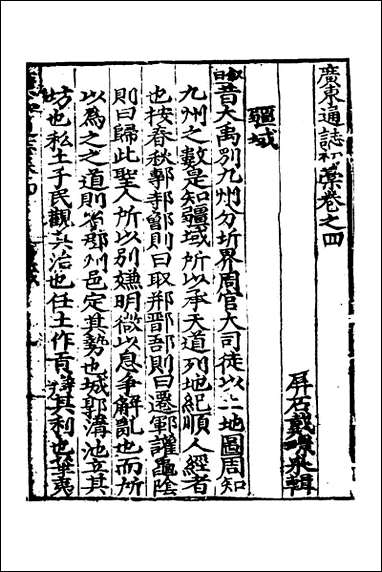 廣東通誌初藁卷之四
屏石戴璟纂輯
疆域
叙曰昔大禹别九州分圻界周官大司徒以土地圖周知
九州之數是知疆域所以承天道列地紀順人經者
也按春秋鄟邿鄫則曰取邢晉吾則曰遷鄆讙龜陰
則曰歸此聖人所以别嫌明微以息争解亂也而所
以為之之道則省郡列邑定其勢也城郭溝池立其
坊也私土子民觀其治也任土作貢辨其利也華夷